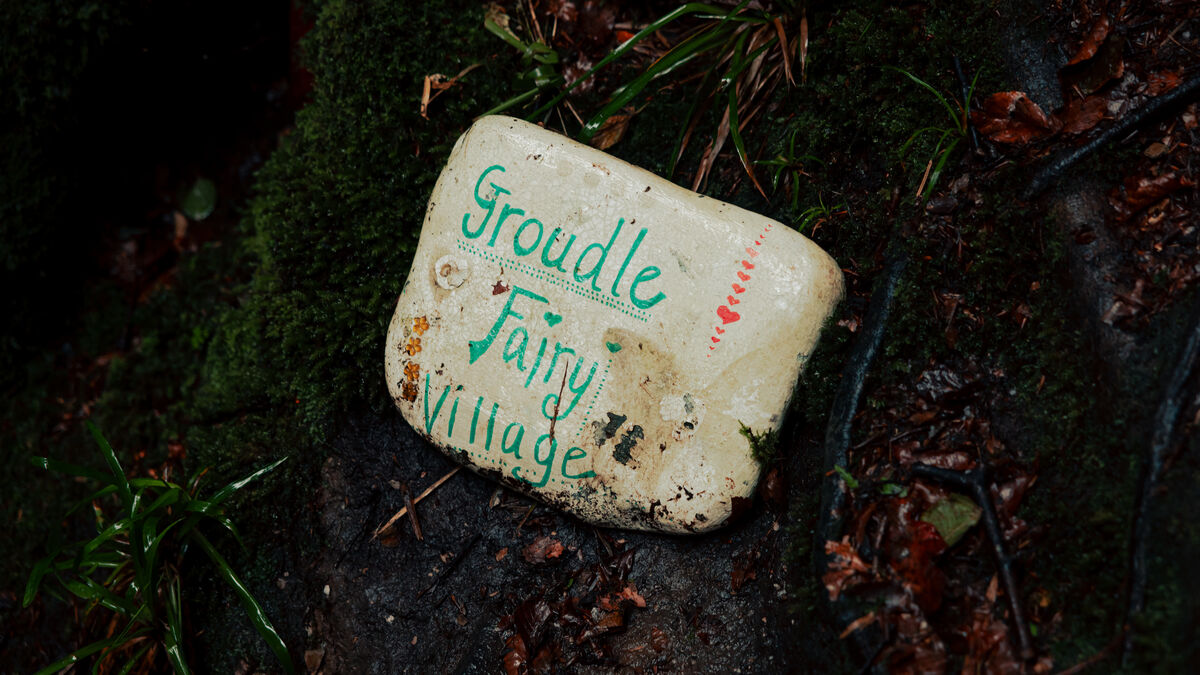 Groudle
Fairy
Village